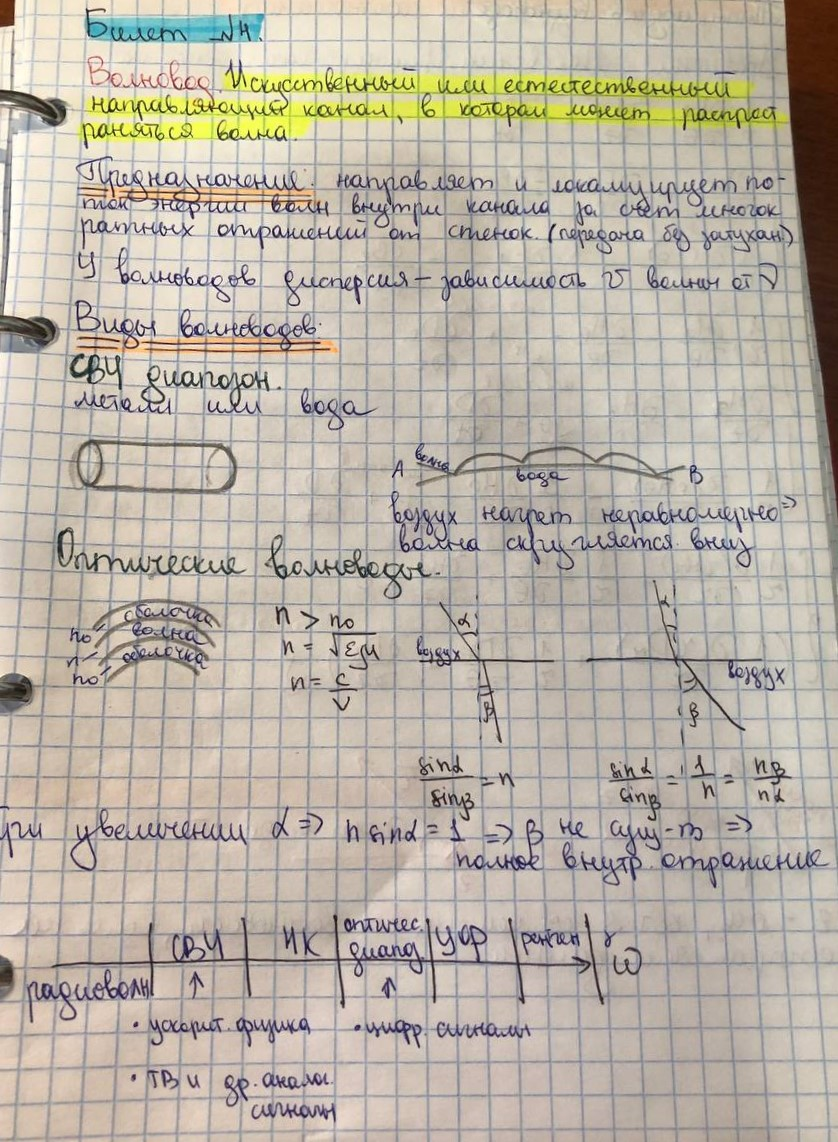 Билет №4.
Волновод. Искусственный или естественный
направляющий канал, в котором может распрост
раняться волна.
Предназначение: направляет и локализирует по-
ток энергии волн внутри канала за счет многок
ратных отражений от стенок. (передача без затухан.)
У волноводов дисперсия – зависимость v волны от ν
Виды волноводов:
СВЧ диапозон.
металл или вода
A волна вода B
воздух нагрет неравномерно =>
волна скругляется вниз
Оптические волноводы.
n₀ оболочка
n волна
n₀ оболочка
n > n₀
n = √εμ
n = c/v
α воздух β
α воздух β
sinα/sinβ = n
sinα/sinβ = 1/n = nβ/nα
При увеличении α => n sinα = 1 => β не сущ-т =>
полное внутр. отражение
радиоволн | СВЧ | ИК | оптичес. диапаз. | УФ | рентген | γ ω
· ускорит. физика · цифр. сигналы
· ТВ и др. аналог.
сигналы